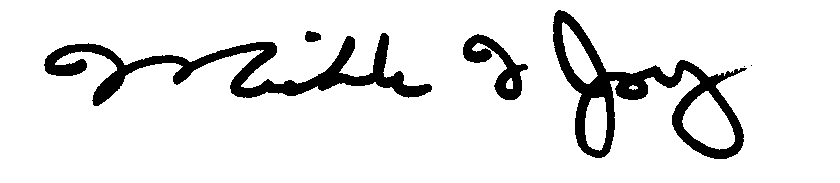 Michele I Joy